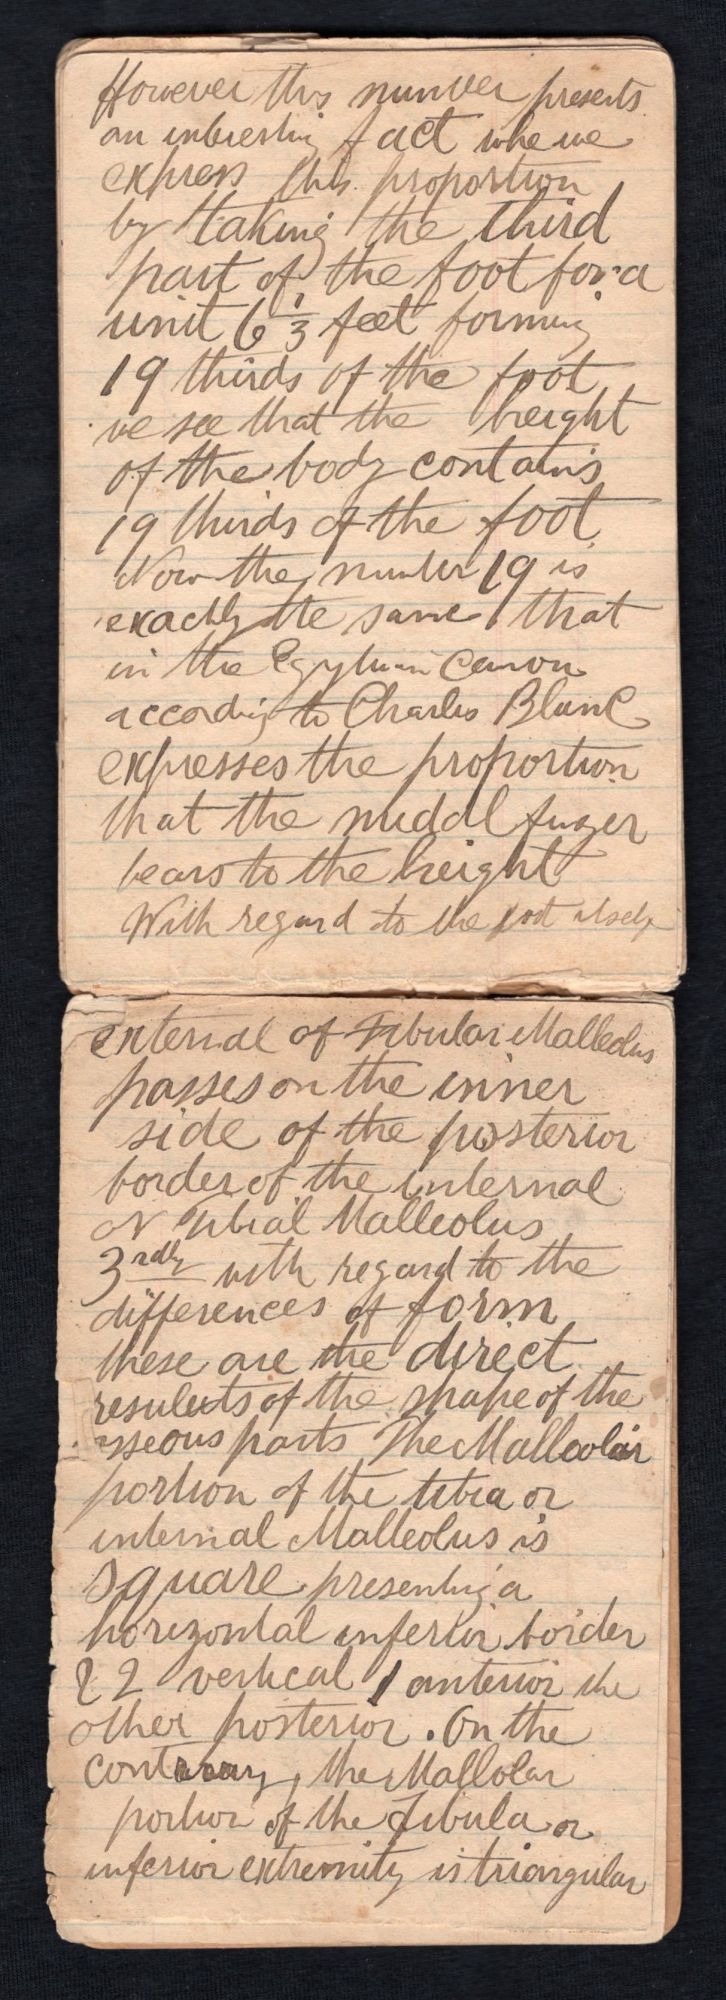 However this number presents
an interesting fact when we
express this proportion
by taking the third
part of the foot for a
unit 6 1/3 feet forming
19 thirds of the foot
we see that the height
of the body contains
19 thirds of the foot.
Now the number 19 is
exactly the same that
in the Egyptian Canon
according to Charles Blanc
expresses the proportion
that the middl finger
bears to the height
With regard to the foot itself
external of Fibular Malleolus
passes on the inner
side of the posterior
border of the internal
or Tibial Malleolus
3rdly with regard to the
differences of form
these are the direct
results of the shape of the
osseous parts The Malleolar
portion of the tibia or
internal Malleolus is
square presenting a
horizontal inferior border
& 2 vertical 1 anterior the
other posterior. On the
contrary, the Mallolar
portion of the Fibula or
inferior extremity is triangular